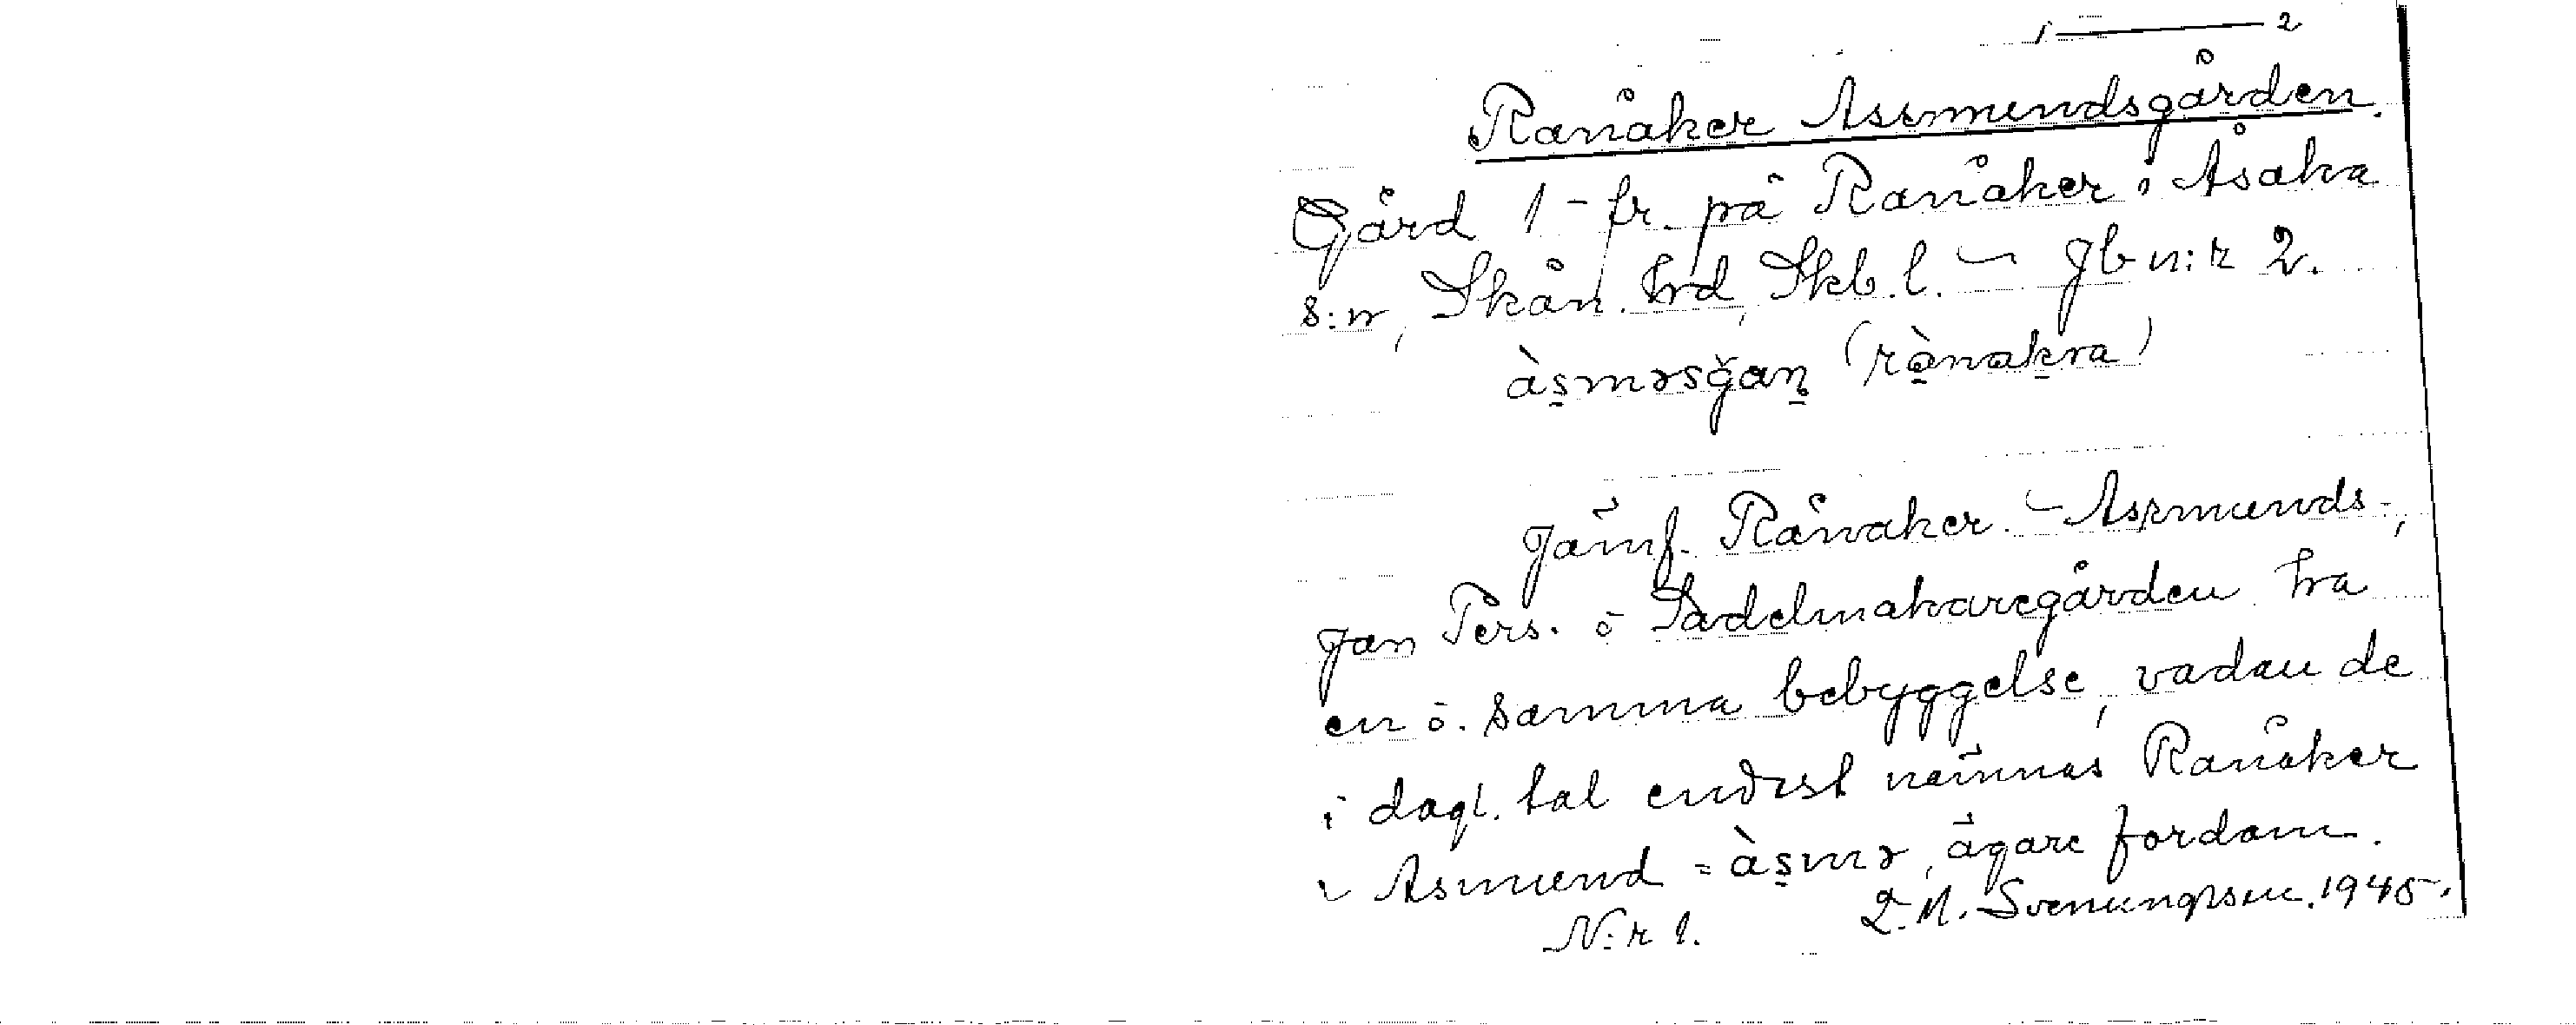 1 — 2
Ranåker Assmundsgården.
Gård 1 - fr. på Ranåker i Åsaka
s:n, Skån. hrd, Skb. l. – Jb n:r 2.
àsməsğan (rànakra)
Jämf. Rånaker. – Assmunds-,
Jan Pers. o Sadelmakaregården
en o. samma bebyggelse, vadan de
i dagl. tal endast nämnas Ranåker
Asmund = àsmə, ägare fordom.
N:r 1. L. M. Svenungsson. 1945.